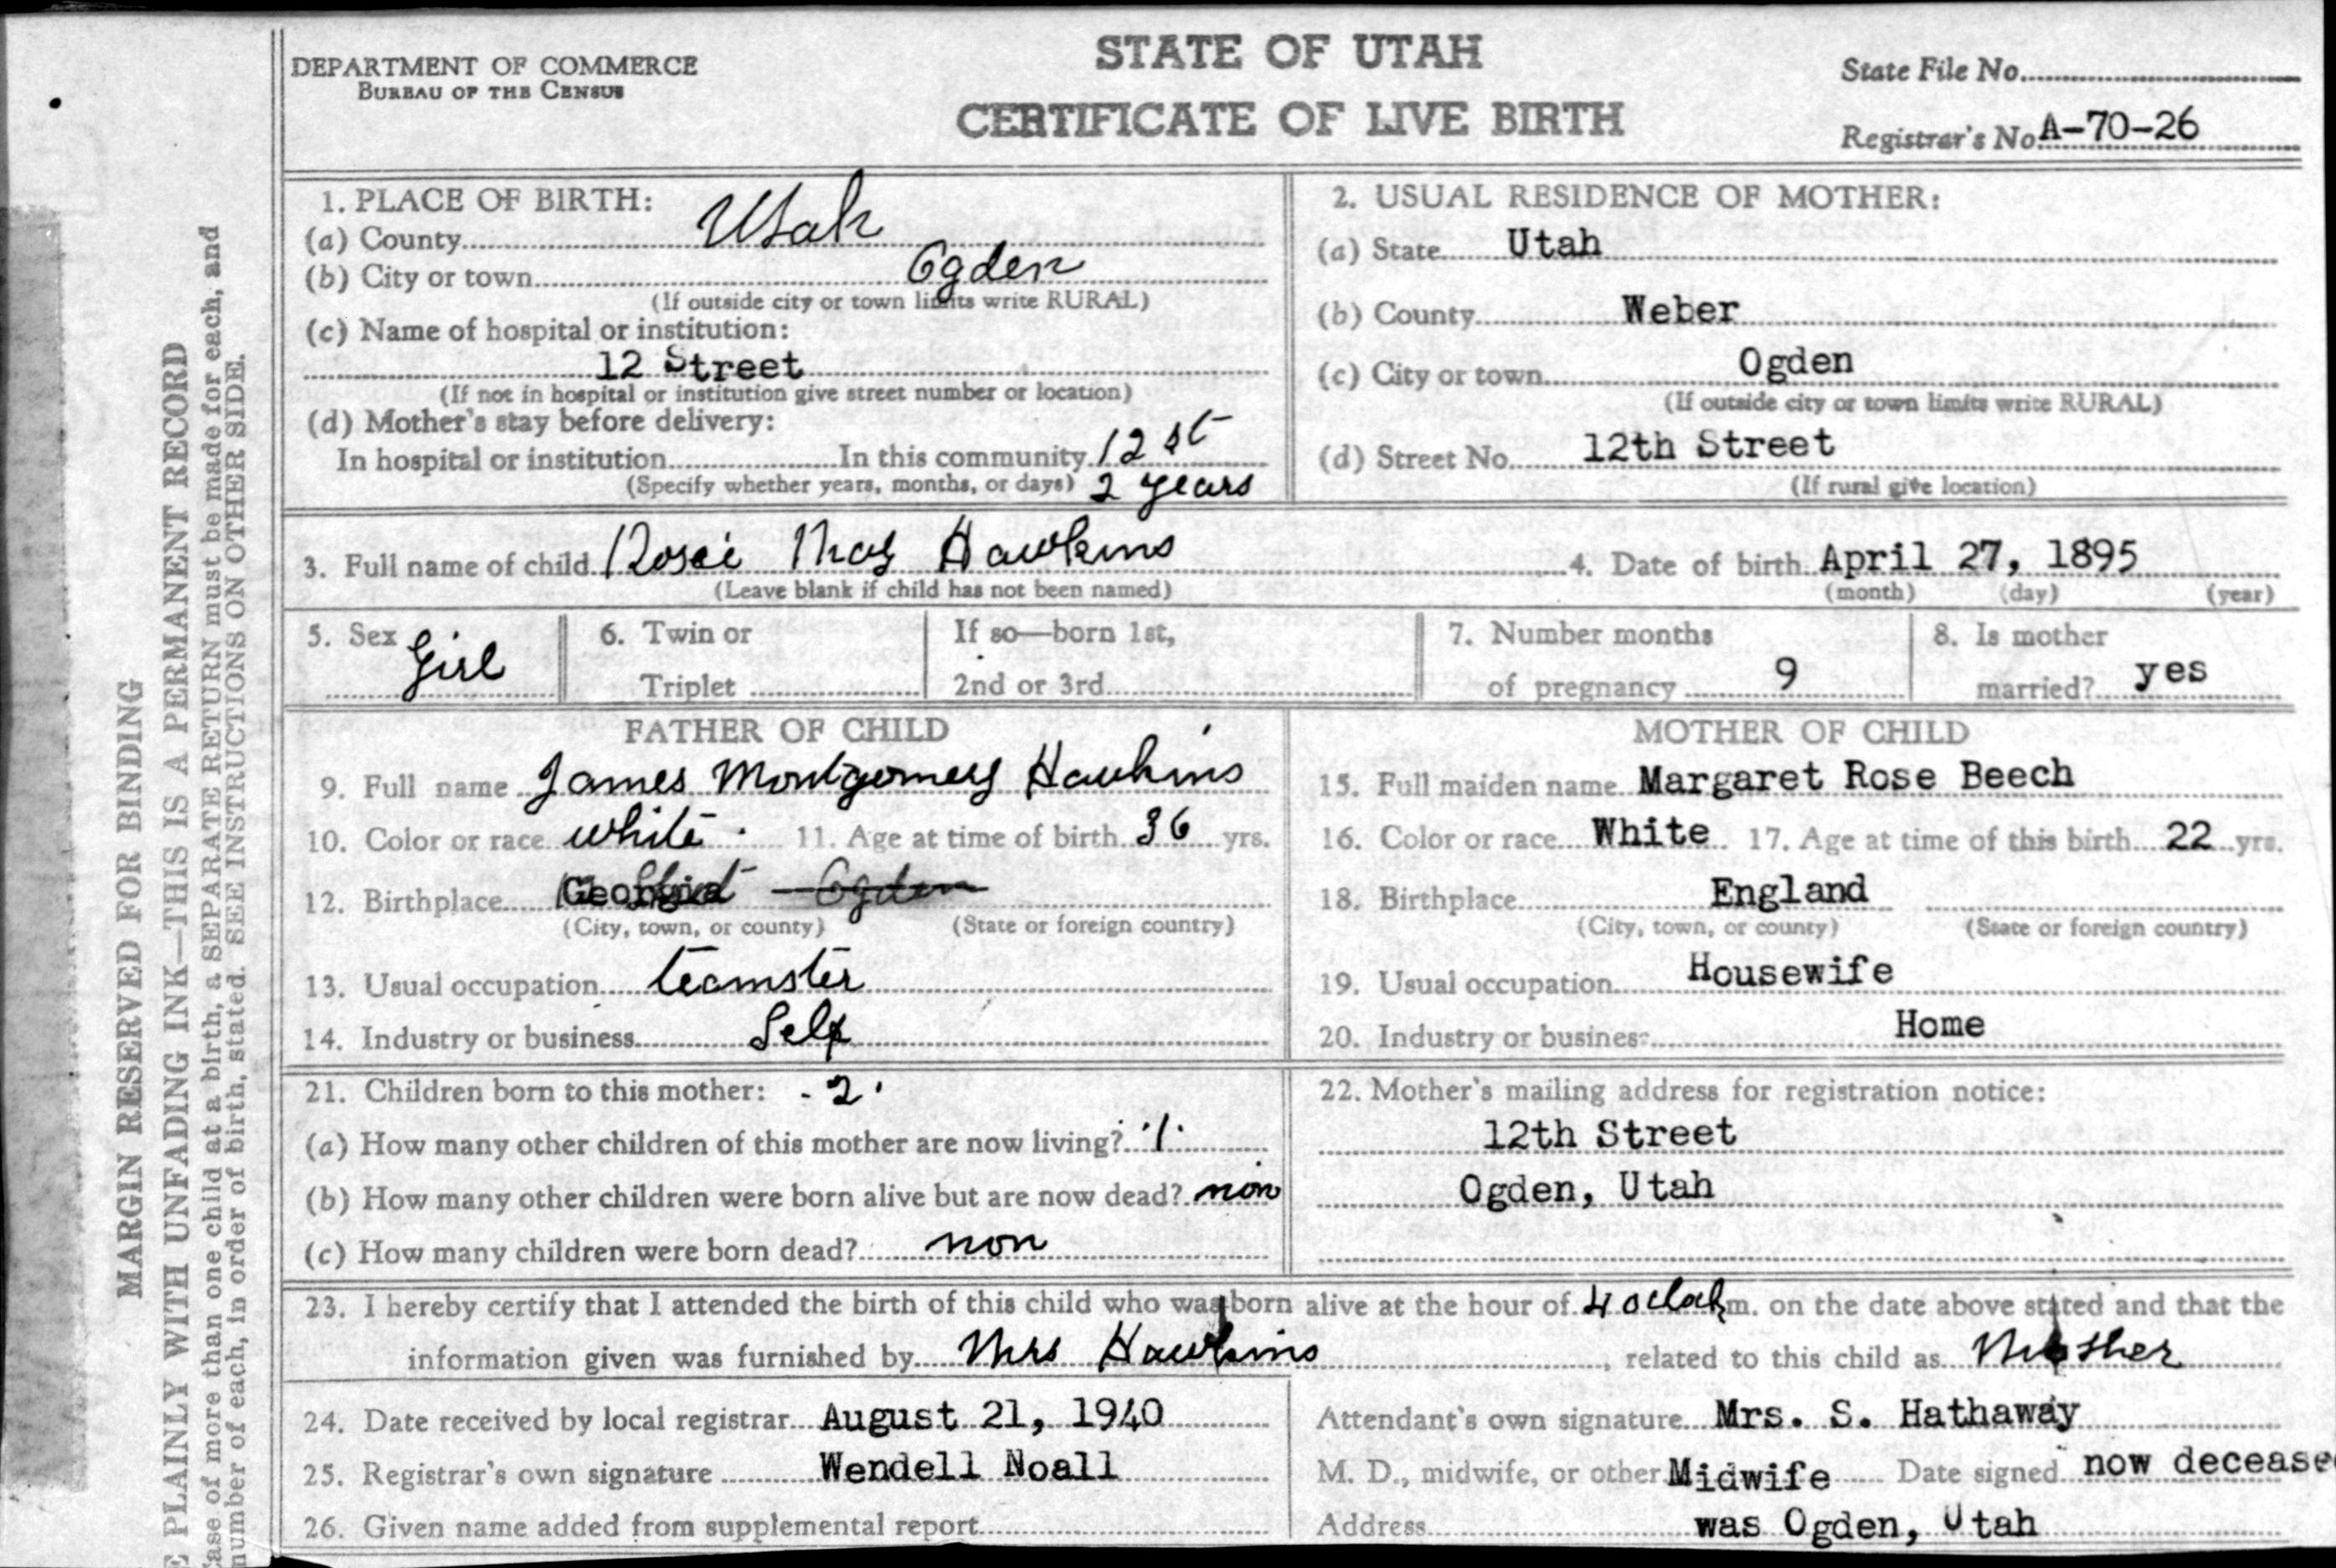 DEPARTMENT OF COMMERCE
BUREAU OF THE CENSUS
STATE OF UTAH
CERTIFICATE OF LIVE BIRTH
State File No.
Registrar's No. A-70-26
MARGIN RESERVED FOR BINDING
E PLAINLY WITH UNFADING INK—THIS IS A PERMANENT RECORD
case of more than one child at a birth, a SEPARATE RETURN must be made for each, and
number of each, in order of birth, stated. SEE INSTRUCTIONS ON OTHER SIDE.
1. PLACE OF BIRTH:
(a) County Utah
(b) City or town Ogden
(If outside city or town limits write RURAL)
(c) Name of hospital or institution:
12 Street
(If not in hospital or institution give street number or location)
(d) Mother's stay before delivery:
In hospital or institution In this community 12 st
(Specify whether years, months, or days) 2 years
2. USUAL RESIDENCE OF MOTHER:
(a) State Utah
(b) County Weber
(c) City or town Ogden
(If outside city or town limits write RURAL)
(d) Street No. 12th Street
(If rural give location)
3. Full name of child Rosie May Hawkins
(Leave blank if child has not been named)
4. Date of birth April 27, 1895
(month) (day) (year)
5. Sex Girl
6. Twin or
Triplet
If so—born 1st,
2nd or 3rd
7. Number months
of pregnancy 9
8. Is mother
married? yes
FATHER OF CHILD
9. Full name James Montgomery Hawkins
10. Color or race white 11. Age at time of birth 36 yrs.
12. Birthplace Georgia Ogden
(City, town, or county) (State or foreign country)
13. Usual occupation teamster
14. Industry or business Self
MOTHER OF CHILD
15. Full maiden name Margaret Rose Beech
16. Color or race White 17. Age at time of this birth 22 yrs.
18. Birthplace England
(City, town, or county) (State or foreign country)
19. Usual occupation Housewife
20. Industry or business Home
21. Children born to this mother: 2
(a) How many other children of this mother are now living? 1
(b) How many other children were born alive but are now dead? non
(c) How many children were born dead? non
22. Mother's mailing address for registration notice:
12th Street
Ogden, Utah
23. I hereby certify that I attended the birth of this child who was born alive at the hour of 4 oclock m. on the date above stated and that the
information given was furnished by Mrs Hawkins, related to this child as Mother
24. Date received by local registrar August 21, 1940
25. Registrar's own signature Wendell Noall
26. Given name added from supplemental report
Attendant's own signature Mrs. S. Hathaway
M. D., midwife, or other Midwife Date signed now decease
Address was Ogden, Utah